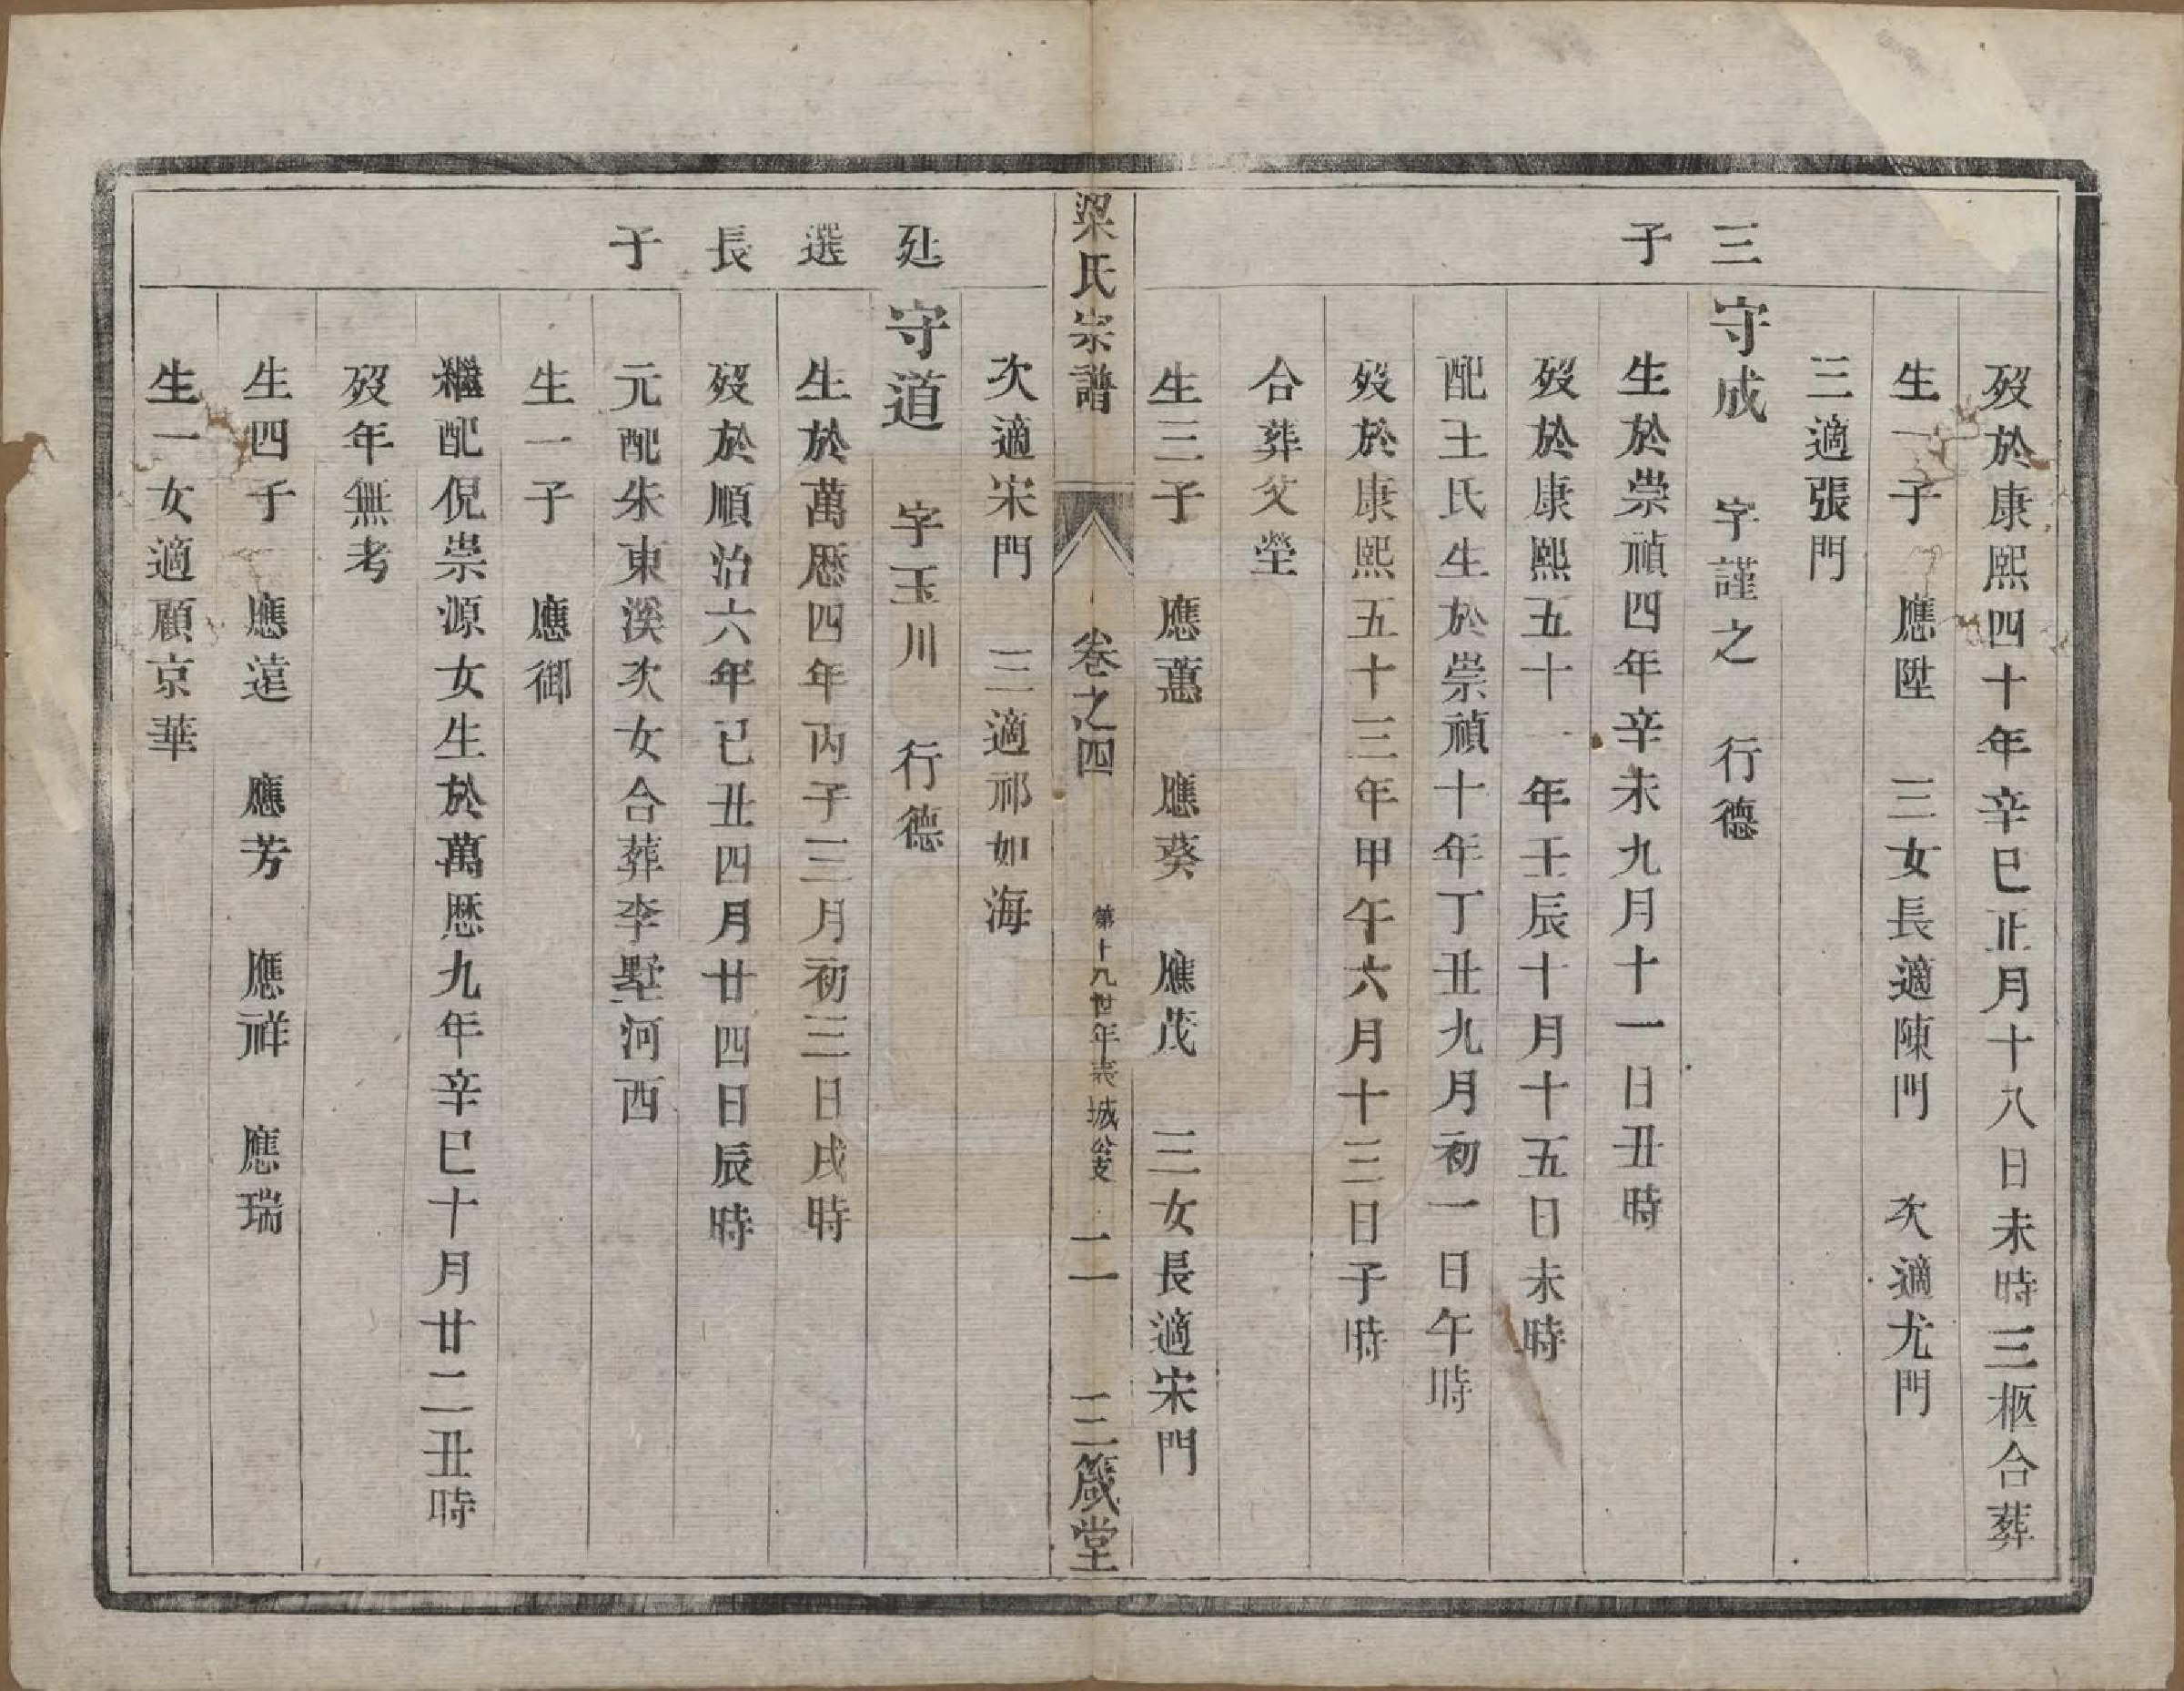 歿於康熙四十年辛巳正月十八日未時三柩合葬
生一子 應陞 三女長適陳門 次適尤門
三適張門
三子
守成 字謹之 行德
生於崇禎四年辛未九月十一日丑時
歿於康熙五十一年壬辰十月十五日未時
配王氏生於崇禎十年丁丑九月初一日午時
歿於康熙五十三年甲午六月十三日子時
合葬父塋
生三子 應蕙 應葵 應茂 三女長適宋門
梁氏宗譜 卷之四 第十九世年表 城公支 二一 三箴堂
次適宋門 三適祁如海
廷選長子
守道 字玉川 行德
生於萬曆四年丙子三月初三日戌時
歿於順治六年己丑四月廿四日辰時
元配朱東溪次女合葬李墅河西
生一子 應御
繼配倪崇源女生於萬曆九年辛巳十月廿二丑時
歿年無考
生四子 應遠 應芳 應祥 應瑞
生一女適顧京華